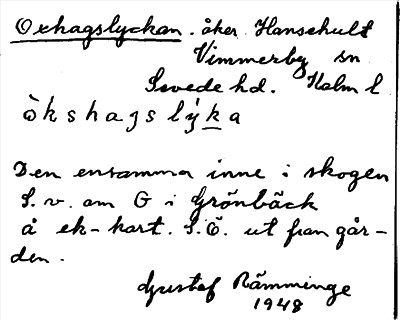 Oxhagslyckan. åker Hanschult
Vimmerby sn
Sevede hd. Kalm l
òkshagslýka
Den ensamma inne i skogen
S. v. om G i Grönbäck
å ek-kart. S.Ö. ut från går-
den.
Gustaf Rämminge
1948